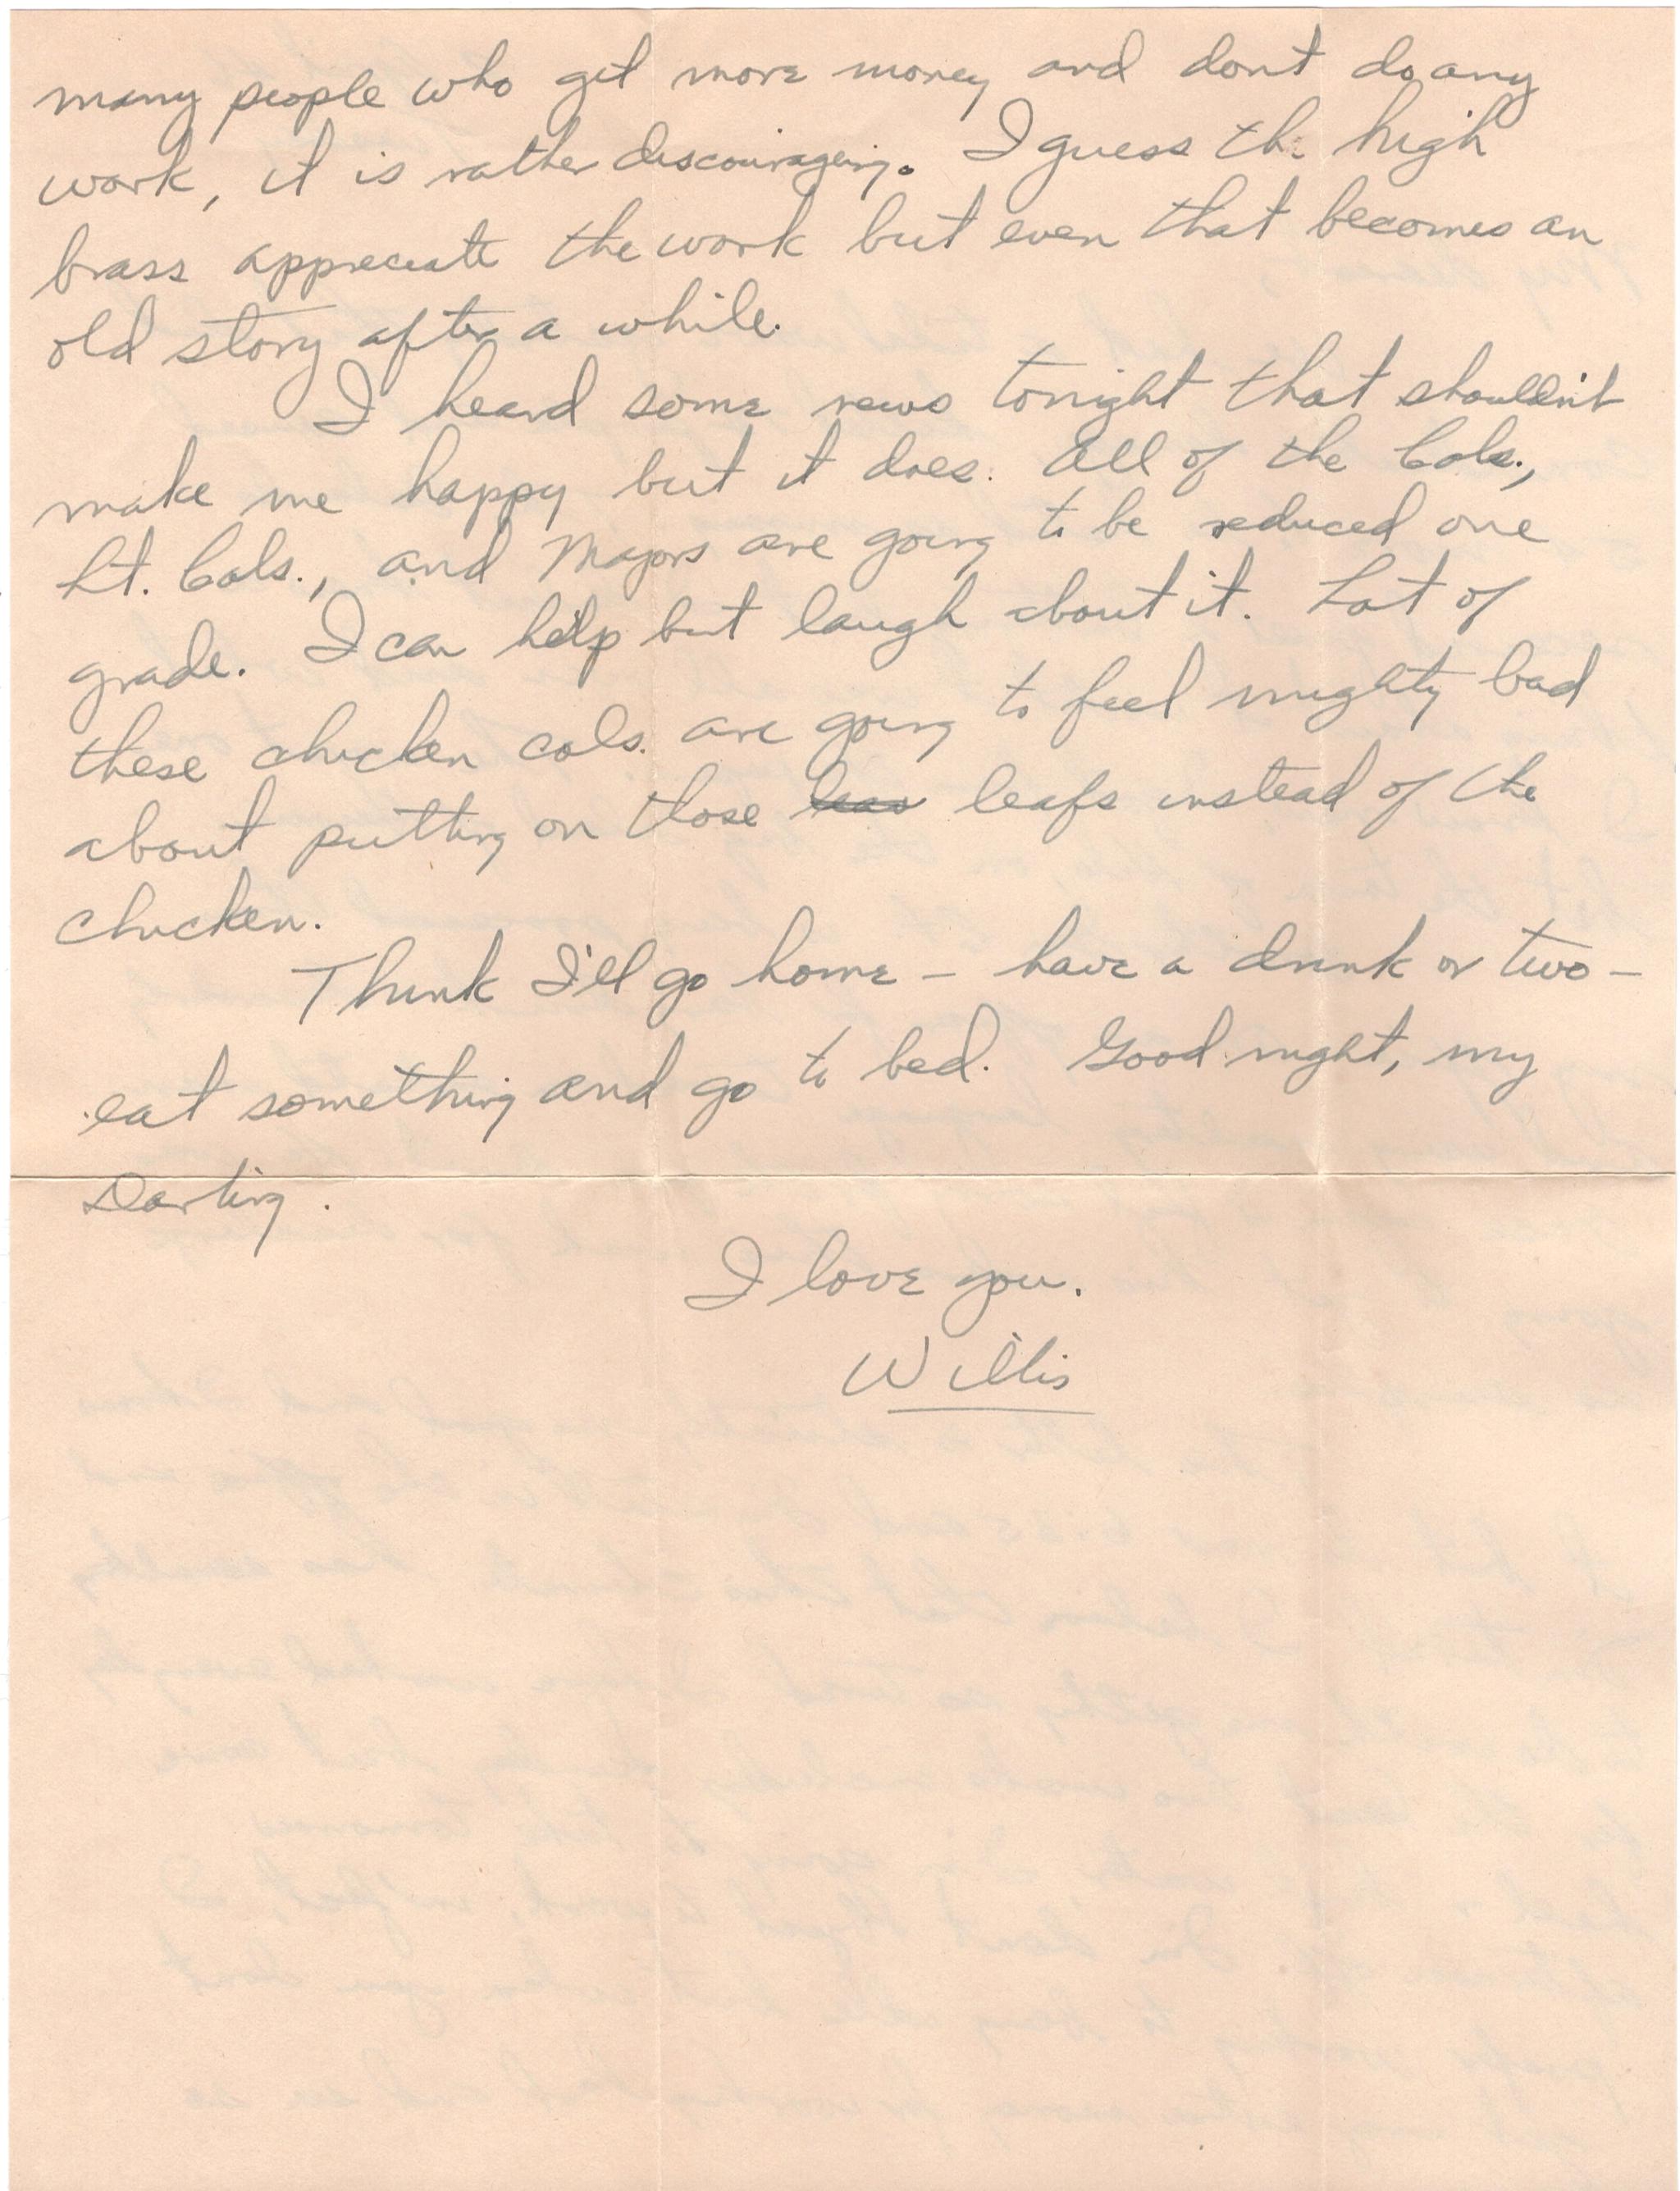 many people who get more money and don't do any
work, it is rather discourageing. I guess the high
brass appreciate the work but even that becomes an
old story after a while.
I heard some news tonight that shouldn't
make me happy but it does. All of the Cols.,
Lt. Cols., and Majors are going to be reduced one
grade. I can help but laugh about it. Lot of
these chicken cols. are going to feel mighty bad
about putting on those leafs instead of the
chicken.
Think I'll go home – have a drink or two –
eat something and go to bed. Good night, my
Darling.
I love you.
Willis